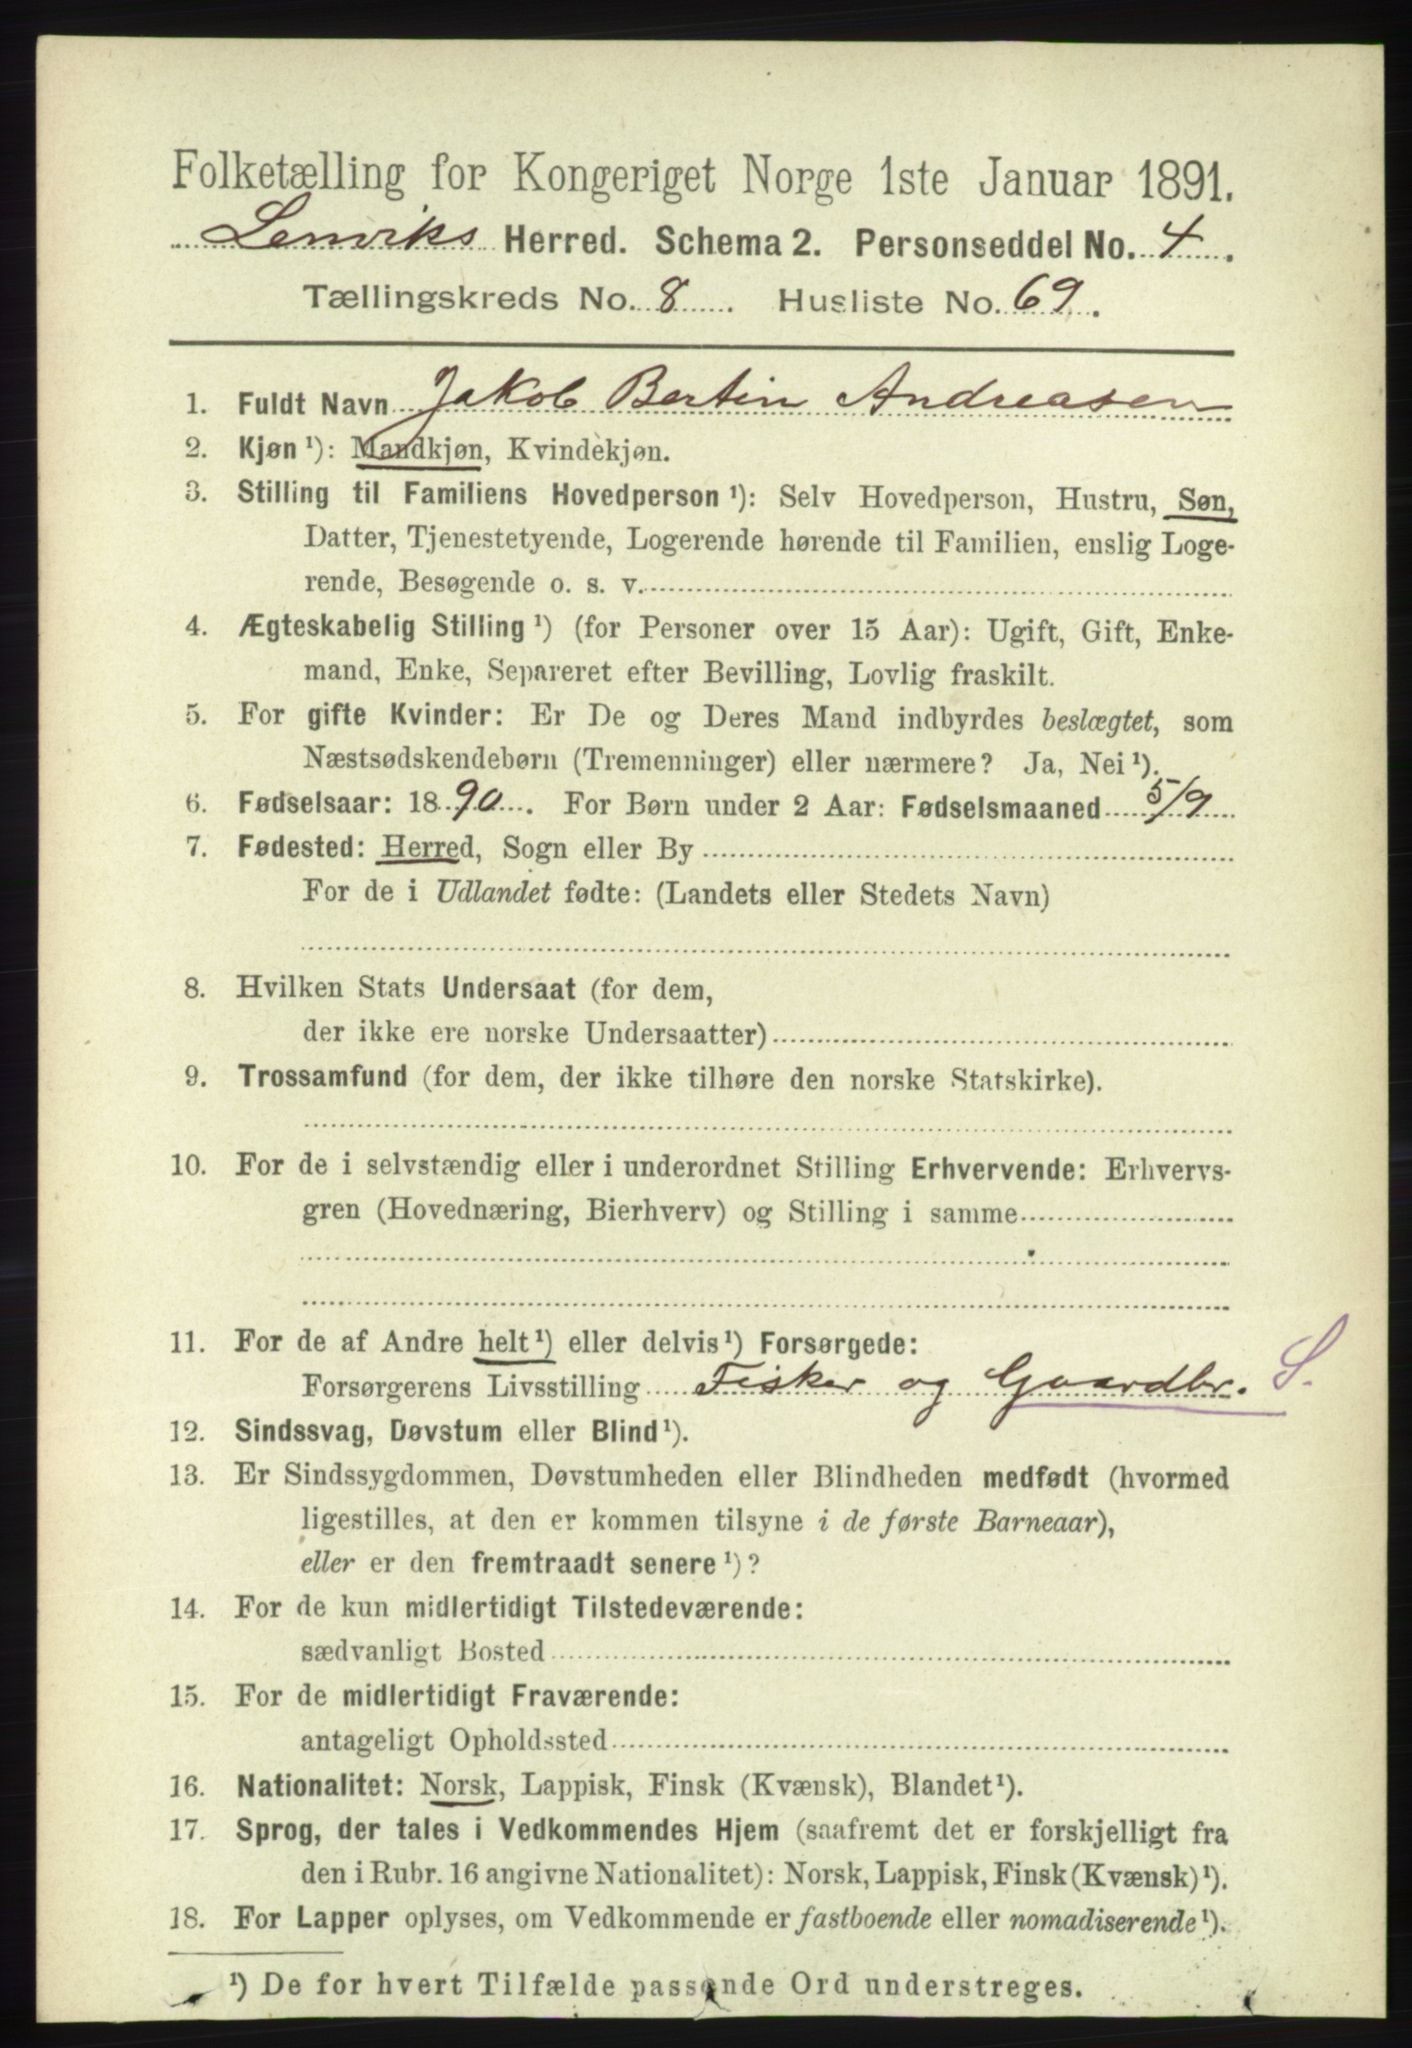 Folketælling for Kongeriget Norge 1ste Januar 1891.
Lenviks Herred. Schema 2. Personseddel No. 4.
Tællingskreds No. 8. Husliste No. 69.
1. Fuldt Navn Jakob Bertin Andreasen
2. Kjøn ¹): Mandkjøn, Kvindekjøn.
3. Stilling til Familiens Hovedperson ¹): Selv Hovedperson, Hustru, Søn,
Datter, Tjenestetyende, Logerende hørende til Familien, enslig Loge-
rende, Besøgende o. s. v.
4. Ægteskabelig Stilling ¹) (for Personer over 15 Aar): Ugift, Gift, Enke-
mand, Enke, Separeret efter Bevilling, Lovlig fraskilt.
5. For gifte Kvinder: Er De og Deres Mand indbyrdes beslægtet, som
Næstsødskendebørn (Tremenninger) eller nærmere? Ja, Nei ¹).
6. Fødselsaar: 1890. For Børn under 2 Aar: Fødselsmaaned 5/9
7. Fødested: Herred, Sogn eller By
For de i Udlandet fødte: (Landets eller Stedets Navn)
8. Hvilken Stats Undersaat (for dem,
der ikke ere norske Undersaatter)
9. Trossamfund (for dem, der ikke tilhøre den norske Statskirke).
10. For de i selvstændig eller i underordnet Stilling Erhvervende: Erhvervs-
gren (Hovednæring, Bierhverv) og Stilling i samme
11. For de af Andre helt ¹) eller delvis ¹) Forsørgede:
Forsørgerens Livsstilling Fisker og Gaardbr. S.
12. Sindssvag, Døvstum eller Blind ¹).
13. Er Sindssygdommen, Døvstumheden eller Blindheden medfødt (hvormed
ligestilles, at den er kommen tilsyne i de første Barneaar),
eller er den fremtraadt senere ¹)?
14. For de kun midlertidigt Tilstedeværende:
sædvanligt Bosted
15. For de midlertidigt Fraværende:
antageligt Opholdssted
16. Nationalitet: Norsk, Lappisk, Finsk (Kvænsk), Blandet ¹).
17. Sprog, der tales i Vedkommendes Hjem (saafremt det er forskjelligt fra
den i Rubr. 16 angivne Nationalitet): Norsk, Lappisk, Finsk (Kvænsk) ¹).
18. For Lapper oplyses, om Vedkommende er fastboende eller nomadiserende ¹).
¹) De for hvert Tilfælde passende Ord understreges.